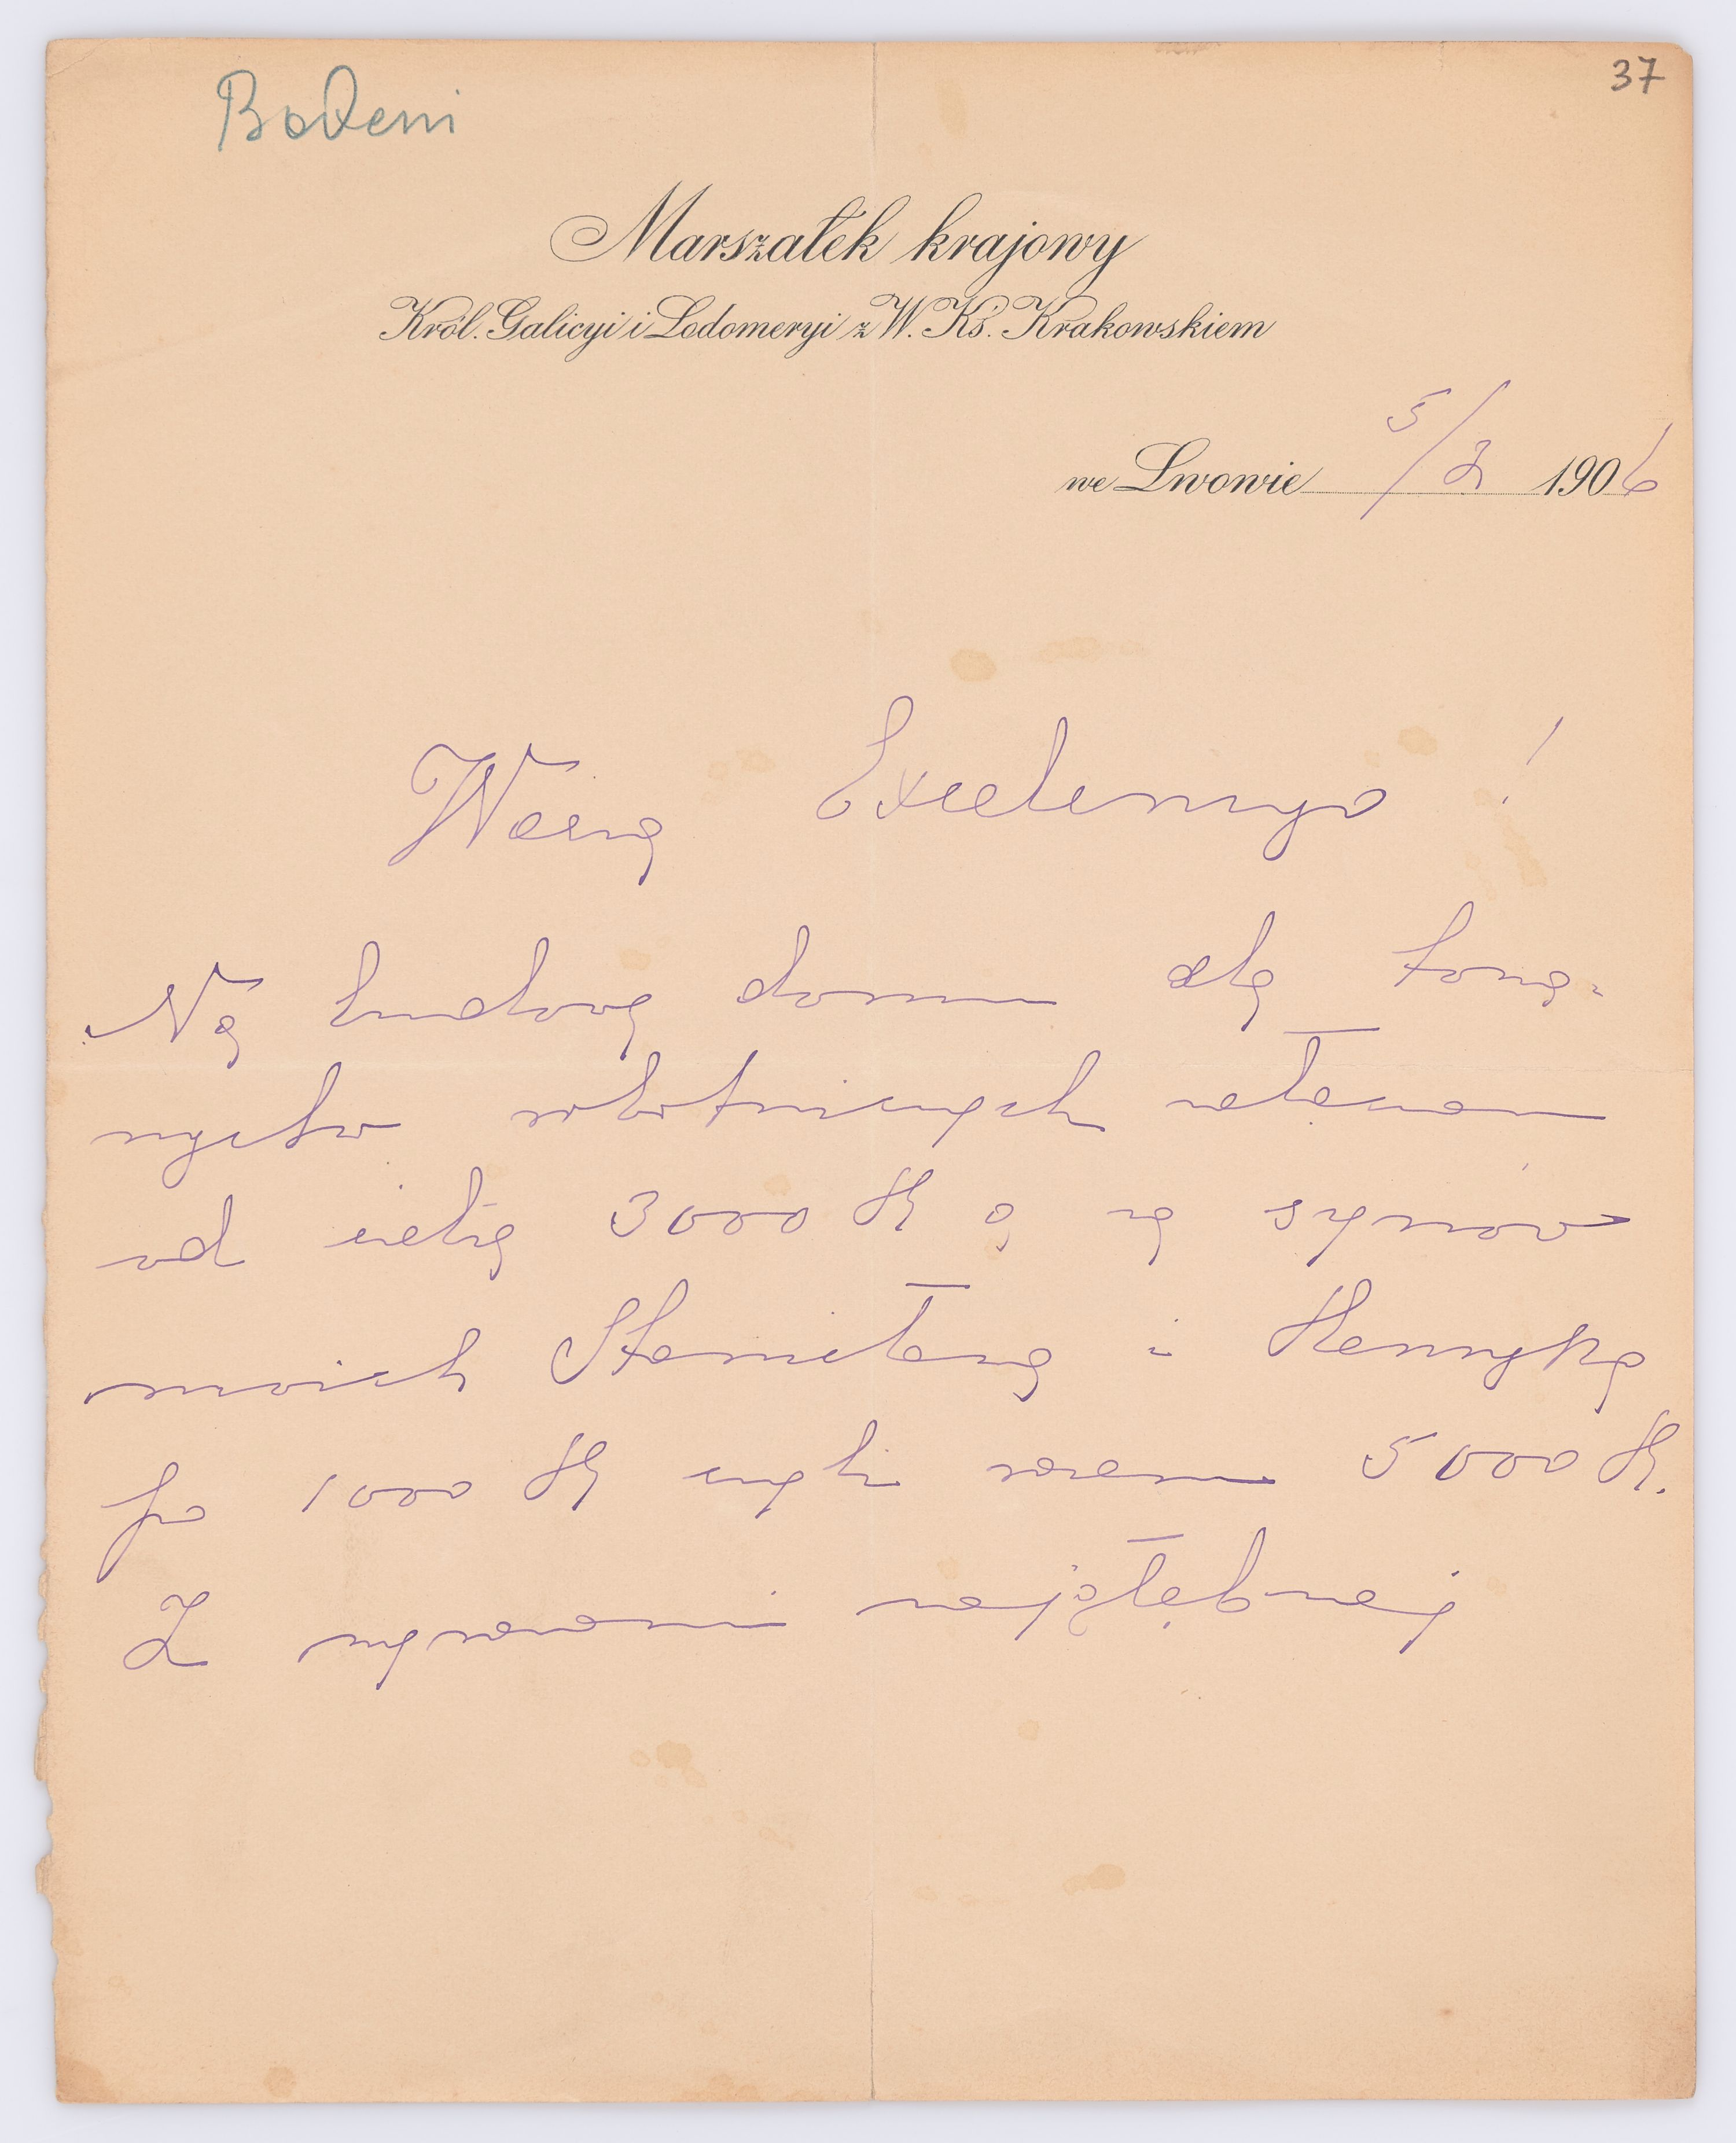 Badeni
37
Marszałek krajowy
Król. Galicyi i Lodomeryi z W. Ks. Krakowskiem
we Lwowie 5/3 1906
Wasza Excelencyo!
Na budowę domu dla towa-
rzystw robotniczych załączam
od siebie 3000 K a za synów
moich Stanisława i Henryka
po 1000 K czyli razem 5000 K.
Z wyrazami najgłębszej